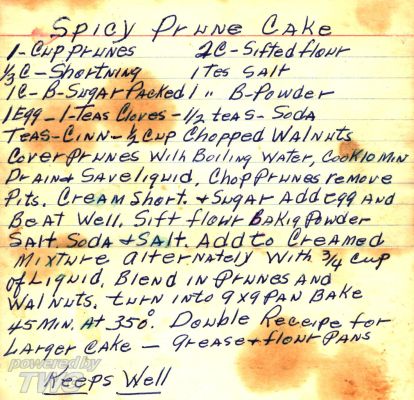 Spicy Prune Cake
1-Cup Prunes 2C-Sifted flour
⅓C-Shortning 1 Tes Salt
1C-B-Sugar Packed 1 " B-Powder
1 Egg-1-Teas Cloves-½ teas-Soda
Teas-Cinn-½ Cup Chopped Walnuts
Cover Prunes With Boiling Water, Cook 10 Min
Drain & Save liquid, Chop Prunes remove
Pits. Cream Short. & Sugar Add egg and
Beat Well. Sift flour Bakig Powder
Salt, Soda & Salt. Add to Creamed
Mixture alternately With ¾ Cup
of Liquid. Blend in Prunes and
Walnuts. turn into 9x9 Pan Bake
45 Min. At 350° Double Receipe for
Larger Cake - Grease & flour Pans
Keeps Well
powered by
TWS